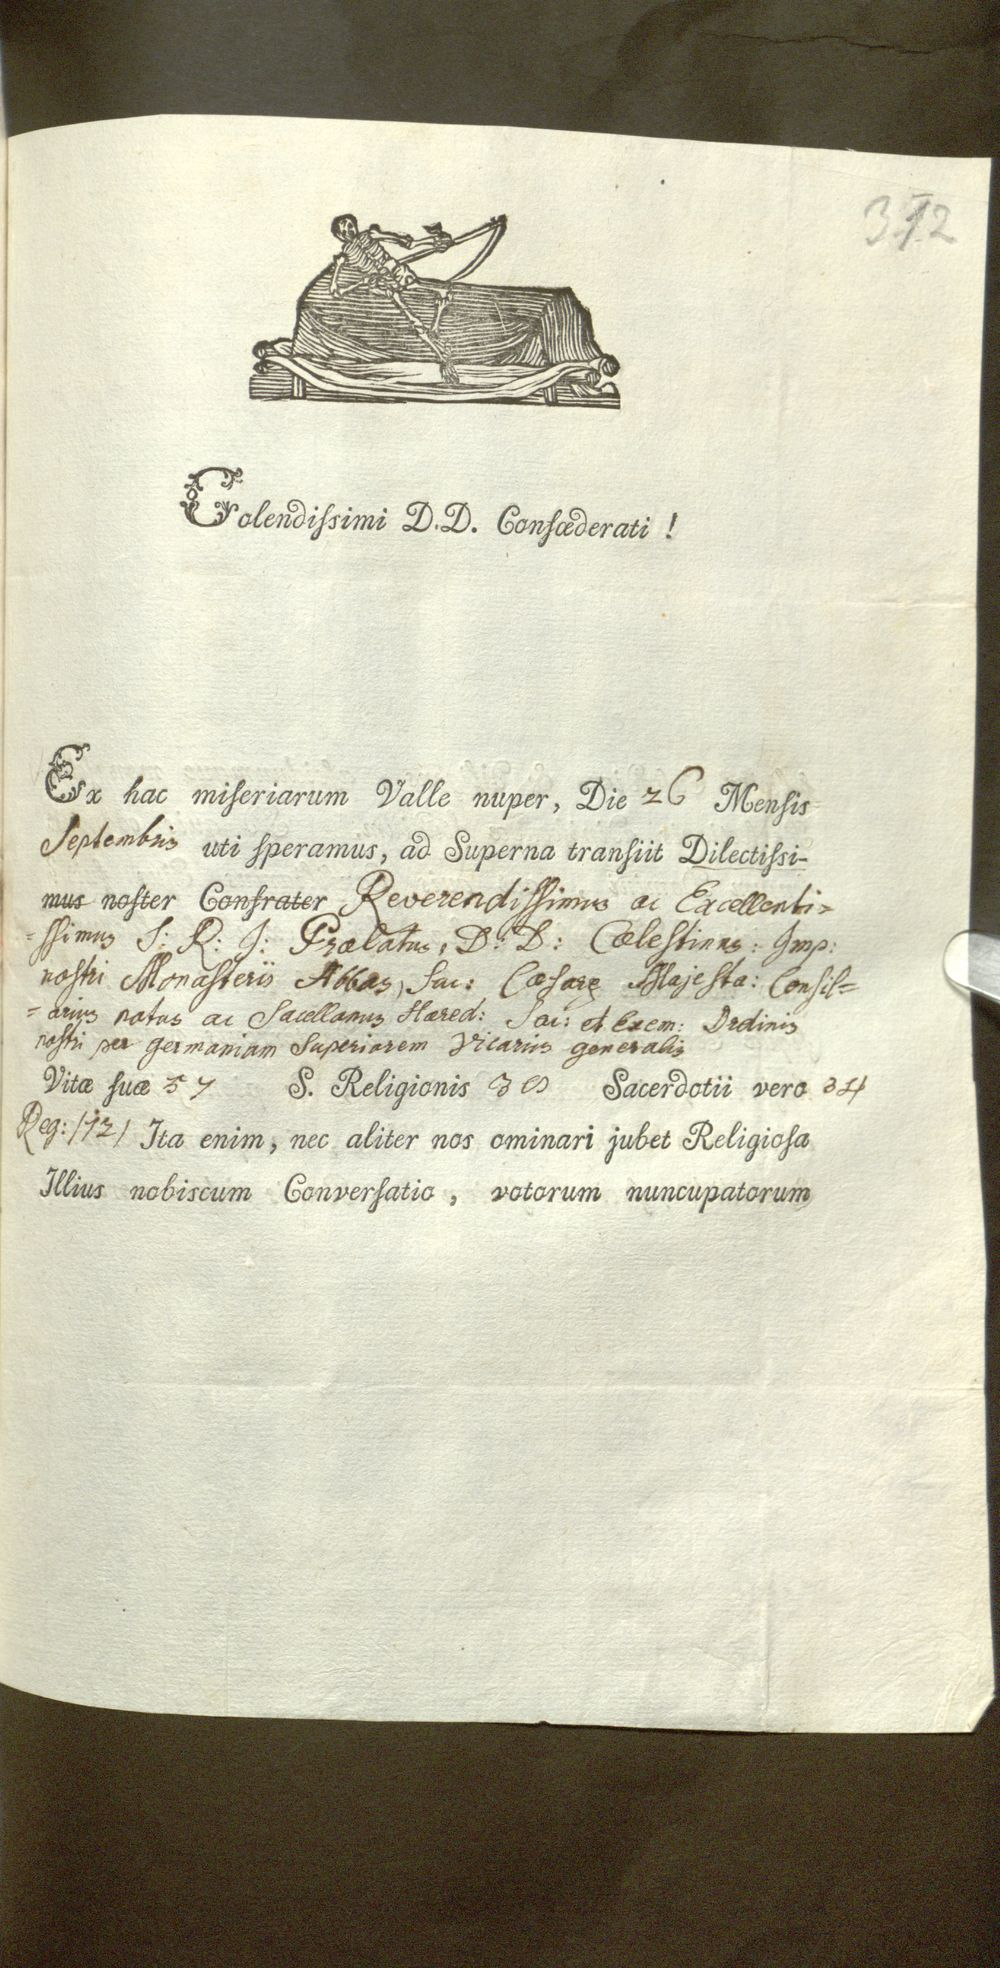 312
Colendiſsimi D.D. Confœderati !
Ex hac miſeriarum Valle nuper, Die 26 Menſis
Septembris uti ſperamus, ad Superna tranſiit Dilectiſsi-
mus noſter Confrater Reverendiſſimus ac Excellenti=
=ſſimus S: R: J: Prælatus, D: D: Cælestinus: Imp:
nostri Monasterii Abbas, Sac: Cæsareæ Majesta: Consil=
=arius natus ac Sacellanus Hæred: Sac: et Exem: Ordinis
nostri per germaniam Superiorem Vicarius generalis
Vitæ ſuæ 57 S. Religionis 38 Sacerdotii vero 34
Reg: /12/ Ita enim, nec aliter nos ominari jubet Religioſa
Illius nobiscum Converſatio, votorum nuncupatorum